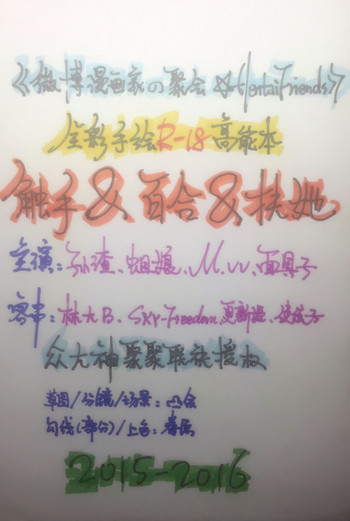 《微博漫画家の聚会 HentaiFriends》
全彩手绘R-18高能本
触手&百合&扶她
主演:孙渣、蛆娘、M.w、面具子
客串:林大B、SKY-Freedom、
众大神聚聚联族授权
草图/分镜/场景:凸念
勾线(部分)/上色:
2015-2016